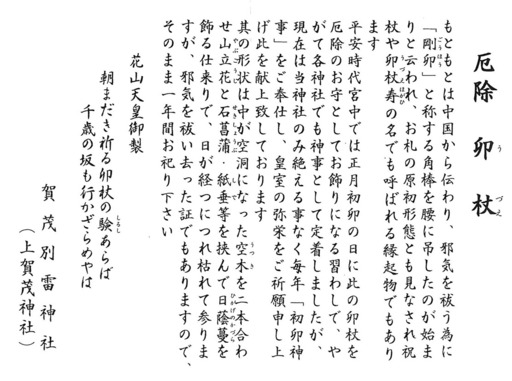 厄除 卯杖
もともとは中国から伝わり、邪気を祓う為に
「剛卯」と称する角棒を腰に吊したのが始ま
りと云われ、お札の原初形態とも見なされ祝
杖や卯杖寿の名でも呼ばれる縁起物でもあり
ます
平安時代宮中では正月初卯の日に此の卯杖を
厄除のお守としてお飾りになる習わしで、や
がて各神社でも神事として定着しましたが、
現在は当神社のみ絶える事なく毎年「初卯神
事」をご奉仕し、皇室の弥栄をご祈願申し上
げ此を献上致しております
其の形状は中が空洞になった空木を二本合わ
せ山立花と石菖蒲・紙垂等を挟んで日蔭蔓を
飾る仕来りで、日が経つにつれ枯れて参りま
すが、邪気を祓い去った証でもありますので、
そのまま一年間お祀り下さい
花山天皇御製
朝まだき祈る卯杖の験あらば
千歳の坂も行かざらめやは
賀茂別雷神社
（上賀茂神社）